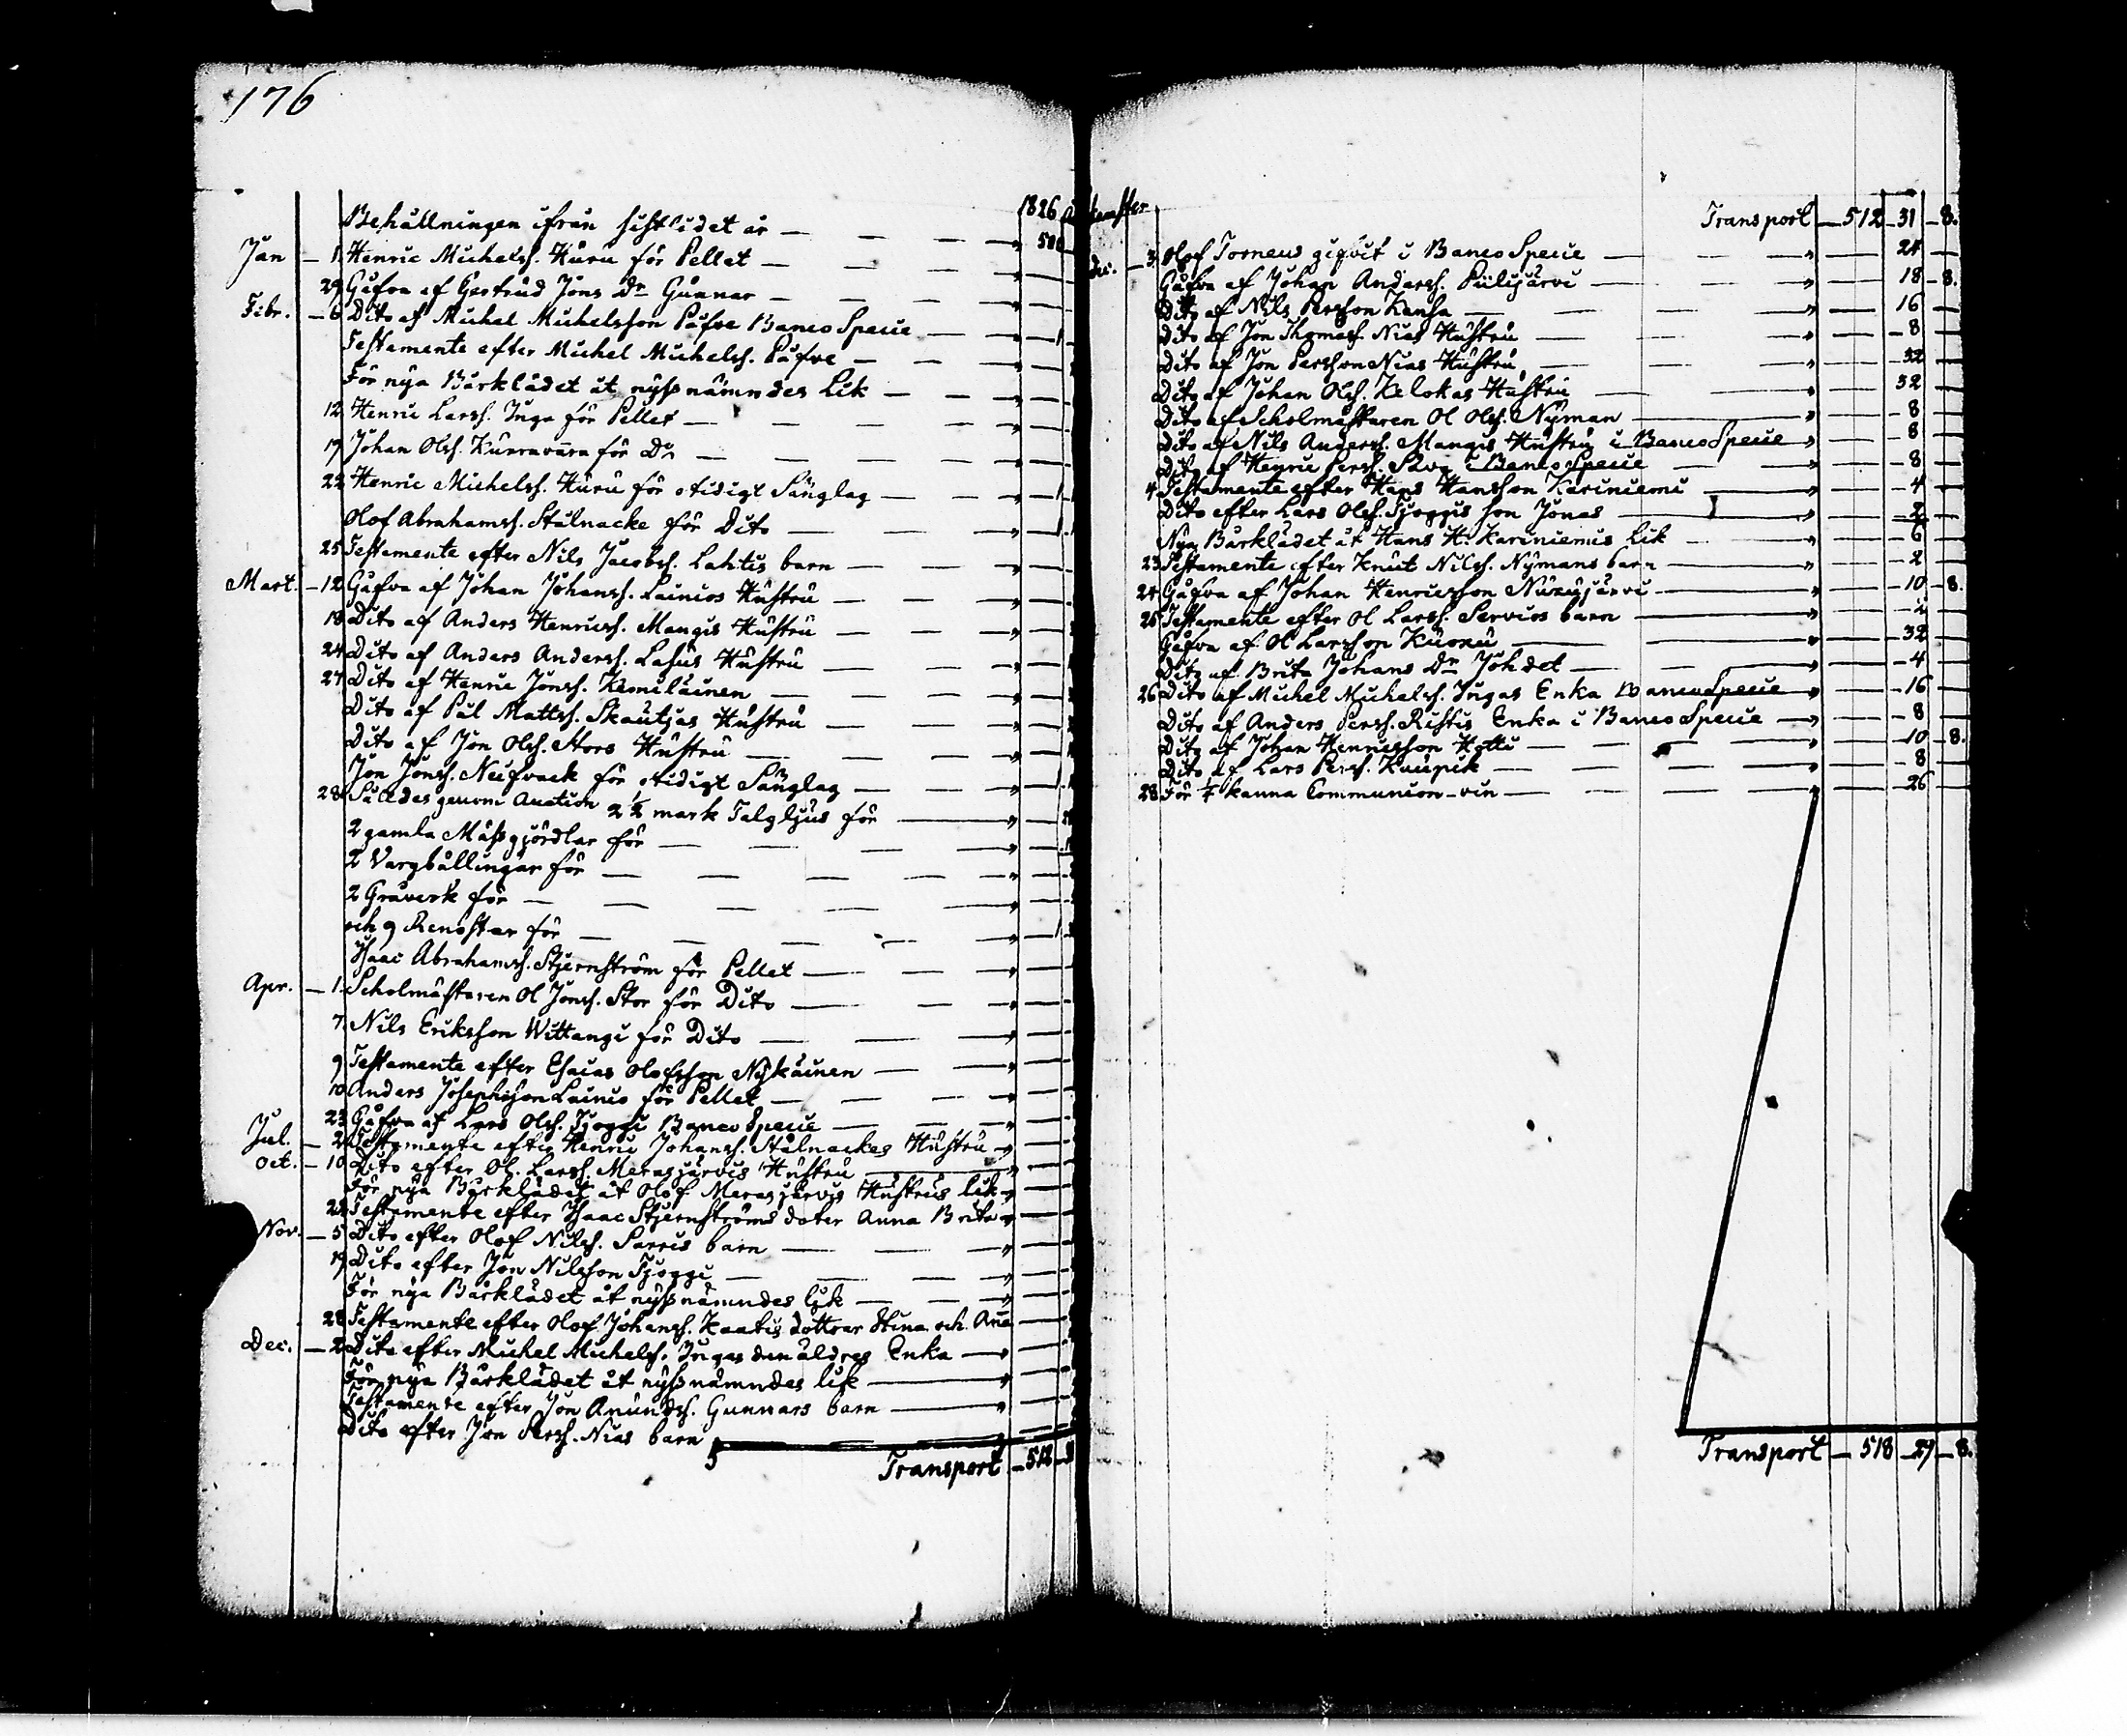 176
1826
Behållningen ifrån sistlidet år
Jan – 1. Henric Michelss. Huru för Pellet
29 Gåfva af Gertrud Jons Dr Gunnar
Febr. – 6 Dito af Michel Michelsson Påfve Banco Specie
Testamente efter Michel Michelss. Påfve
För nya Bårklädet åt nyssnämndes Lik
12 Henric Larss. Inga för Pellet
17 Johan Olss. Kurravara för Do
22 Henric Michelss. Huru för otidigt Sänglag
Olof Abrahamss. Stålnacke för Dito
25 Testamente efter Nils Jacobss. Lahtis barn
Mart. – 12 Gåfva af Johan Johanss. Lainios Hustru
18 Dito af Anders Henricss. Mangis Hustru
24 Dito af Anders Anderss. Lasus Hustru
27 Dito af Henric Jonss. Kemiläinen
Dito af Pål Mattss. Skautjas Hustru
Dito af Jon Olss. Stors Hustru
Jon Jonss. Neifvack för otidigt Sänglag
28 Såldes genom Auction 2 1/2 mark Talgljus för
2 gamla Mässgjördlar för
2 Vargbällingar för
2 Gråverk för
och 9 Renostar för
Isaac Abrahamss. Stjernström för Pellet
Apr. – 1. Scholmästaren Ol Jonss. Stor för Dito
7. Nils Eriksson Wittangi för Dito
9 Testamente efter Esaias Olofsson Nykäinen
10 Anders Josephsson Lainio för Pellet
23 Gåfva af Lars Olss. Sjoggi Banco Specie
Jul. – 2 Testamente efter Henric Johanss. Stålnackes Hustru
Oct. – 10 Dito efter Ol. Larss. Merasjärvis Hustru
För nya Bårklädet åt Olof Merasjärvis Hustrus lik
Testamente efter Isaac Stjernströms doter Anna Brita
Nov. – 5 Dito efter Olof Nilss. Sarris barn
19 Dito efter Jon Nilsson Sjoggi
För nya Bårklädet åt nyssnämndes lik
28 Testamente efter Olof Johanss. Kaatis döttrar Stina och
Dec. – 2 Dito efter Michel Michelss. Ingas den äldres Enka
För nya Bårklädet åt nyssnämndes lik
Testamente efter Jon Amundss. Gunnars barn
Dito efter Jon Perss. Nias barn
Transport – 512
Transport – 512 – 31 – 8.
3. Olof Torneus gifvit i Banco Specie 24
Gåfva af Johan Anderss. Piilijärvi 18 – 8.
Dito af Nils Persson Kansa 16
Dito af Jon Thomass. Nias Hustru 8
Dito af Jon Persson Nias Hustru 32
Dito af Johan Olss. Kelokas Hustru 32
Dito af Scholmästaren Ol Olss. Nyman 8
Dito af Nils Anderss. Mangis Hustru i Banco Specie 8
Dito af Henric Perss. i Banco Specie 8
4 Testamente efter Hans Hansson Kariniemi 4
Dito efter Lars Olss. Sjoggis son Jonas 2
Nya Bårklädet åt Hans H. Kariniemis Lik 6
23 Testamente efter Knut Nilss. Nymans barn 2
24 Gåfva af Johan Henricsson Nuxujärvi 10 – 8.
25 Testamente efter Ol Larss. Servios barn
Gåfva af Ol Larsson Kuoxu 32
Dito af Brita Johans Dr Johdet 4
26 Dito af Michel Michelss. Ingas Enka Banco Specie 16
Dito af Anders Perss. Ristis Enka i Banco Specie 8
Dito af Johan Henricsson Hotti 10 – 8.
Dito af Lars Perss. Kuupik 8
28 För 1/4 kanna Communion-vin 26
Transport – 518 – 29 – 8.